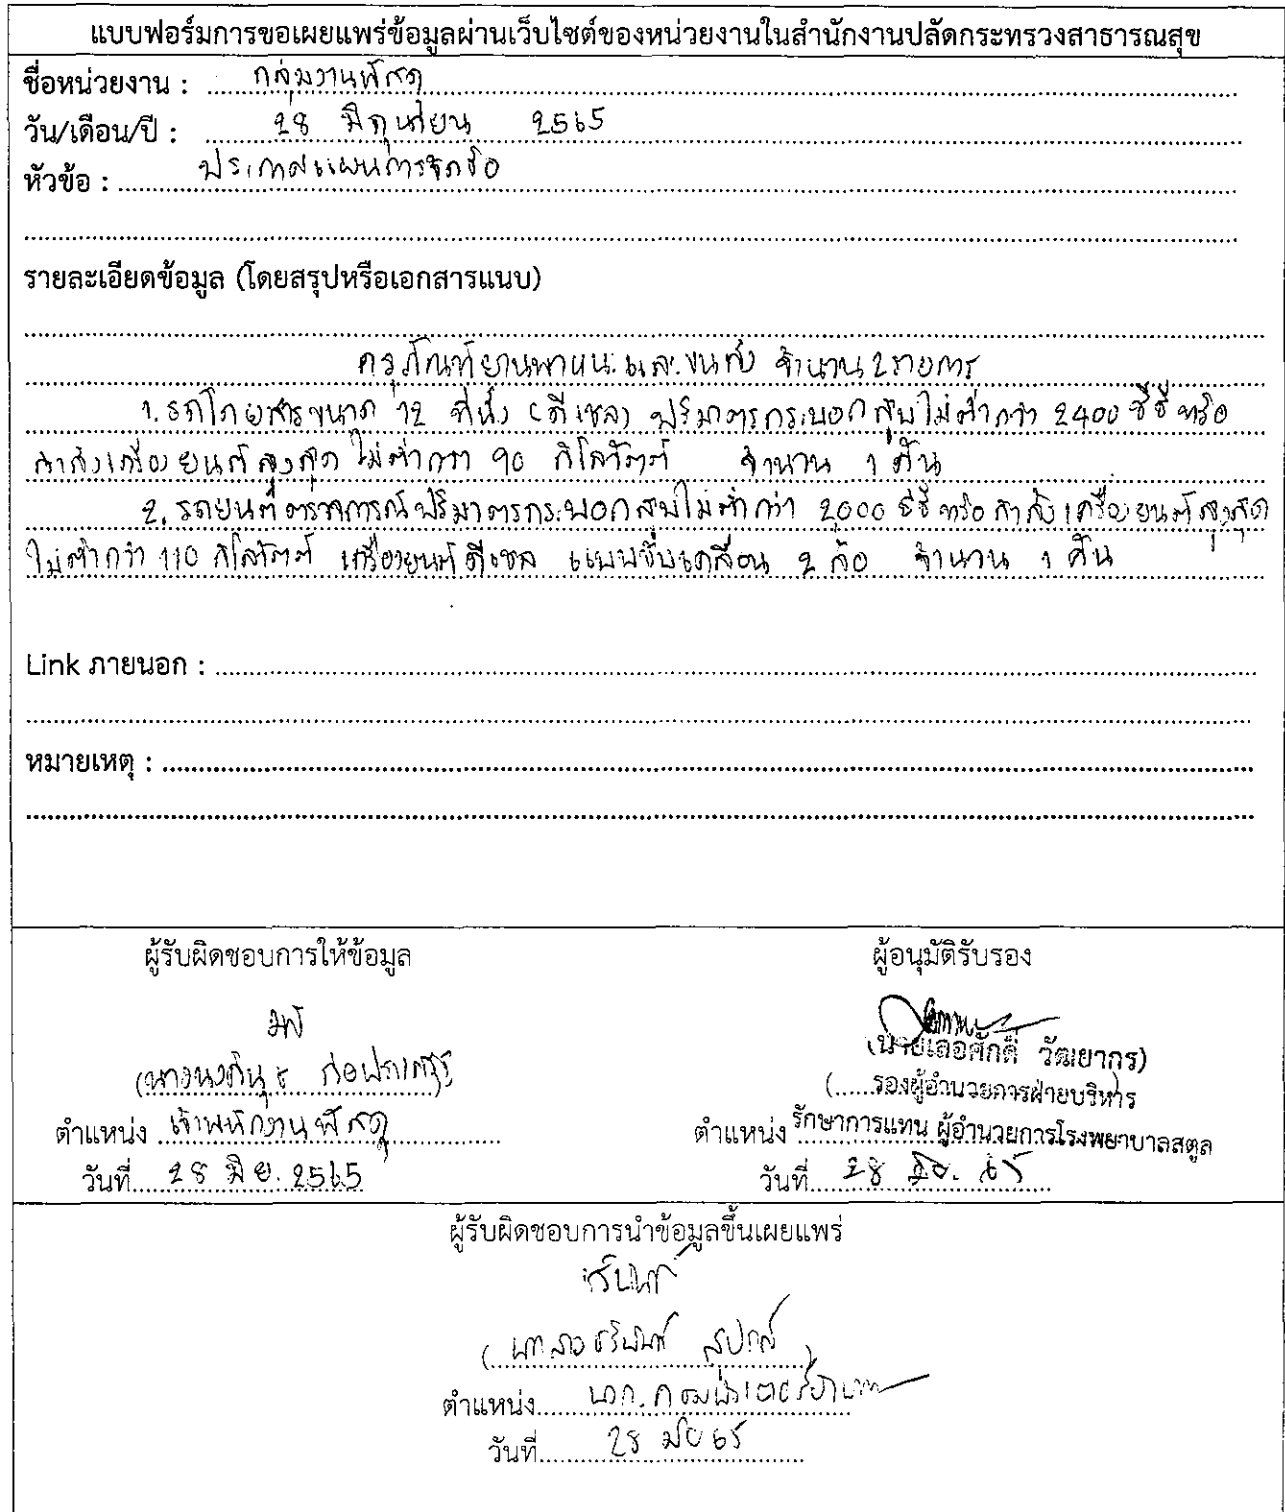 แบบฟอร์มการขอเผยแพร่ข้อมูลผ่านเว็บไซต์ของหน่วยงานในสำนักงานปลัดกระทรวงสาธารณสุข
ชื่อหน่วยงาน : กลุ่มงานพัสดุ
วัน/เดือน/ปี : 28 มิถุนายน 2565
หัวข้อ : ประกาศแผนการจัดซื้อ
รายละเอียดข้อมูล (โดยสรุปหรือเอกสารแนบ)
ครุภัณฑ์ยานพาหนะและขนส่ง จำนวน 2 รายการ
1. รถโดยสารขนาด 12 ที่นั่ง (ดีเซล) ปริมาตรกระบอกสูบไม่ต่ำกว่า 2400 ซีซี หรือ
กำลังเครื่องยนต์สูงสุด ไม่ต่ำกว่า 90 กิโลวัตต์ จำนวน 1 คัน
2. รถยนต์ตรวจการณ์ ปริมาตรกระบอกสูบไม่ต่ำกว่า 2000 ซีซี หรือ กำลังเครื่องยนต์สูงสุด
ไม่ต่ำกว่า 110 กิโลวัตต์ เครื่องยนต์ดีเซล แบบขับเคลื่อน 2 ล้อ จำนวน 1 คัน
Link ภายนอก :
หมายเหตุ :
ผู้รับผิดชอบการให้ข้อมูล
ตำแหน่ง เจ้าพนักงานพัสดุ
วันที่ 28 มิย. 2565
ผู้อนุมัติรับรอง
(นายเลอศักดิ์ วัฒยากร)
รองผู้อำนวยการฝ่ายบริหาร
ตำแหน่ง รักษาการแทน ผู้อำนวยการโรงพยาบาลสตูล
วันที่ 28 มิย. 65
ผู้รับผิดชอบการนำข้อมูลขึ้นเผยแพร่
ตำแหน่ง
วันที่ 28 มิย 65